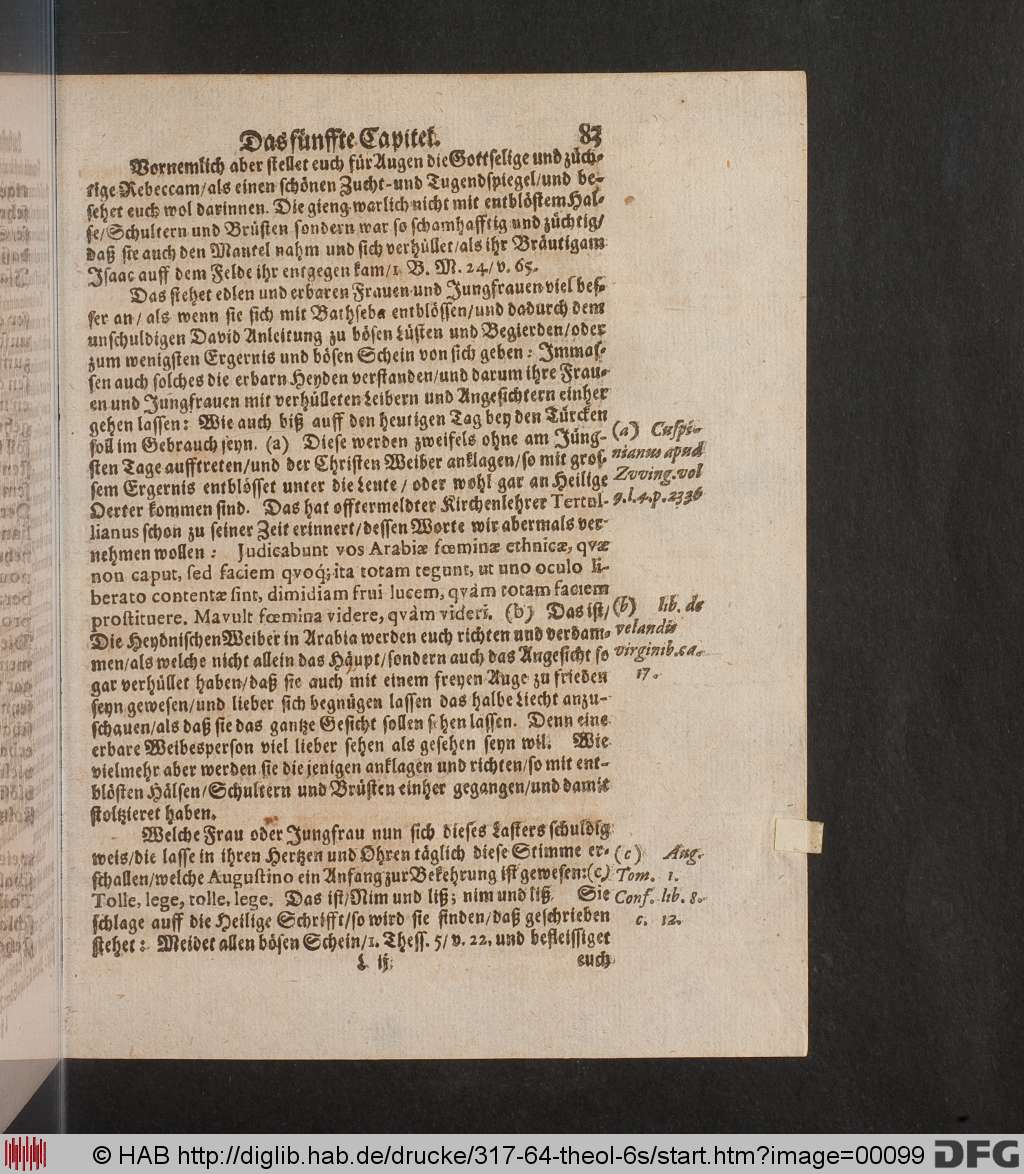 Das fünffte Capitel. 83
Vornemlich aber stellet euch für Augen die Gottselige und züch-
tige Rebeccam/als einen schönen Zucht- und Tugendspiegel/und be-
sehet euch wol darinnen. Die gieng warlich nicht mit entblöstem Hal-
se/Schultern und Brüsten sondern war so schamhafftig und züchtig/
daß sie auch den Mantel nahm und sich verhüllet/als ihr Bräutigam
Isaac auff dem Felde ihr entgegen kam/1. B. M. 24/v. 65.
Das stehet edlen und erbaren Frauen und Jungfrauen viel bes-
ser an/als wenn sie sich mit Bathseba entblössen/und dadurch dem
unschuldigen David Anleitung zu bösen Lüsten und Begierden/oder
zum wenigsten Ergernis und bösen Schein von sich geben: Immas-
sen auch solches die erbarn Heyden verstanden/und darum ihre Frau-
en und Jungfrauen mit verhülleten Leibern und Angesichtern einher
gehen lassen: Wie auch biß auff den heutigen Tag bey den Türcken
soll im Gebrauch seyn. (a) Diese werden zweifels ohne am Jüng-
sten Tage aufftreten/und der Christen Weiber anklagen/so mit gros-
sem Ergernis entblösset unter die Leute/oder wohl gar an Heilige
Oerter kommen sind. Das hat offtermeldter Kirchenlehrer Tertul-
lianus schon zu seiner Zeit erinnert/dessen Worte wir abermals ver-
nehmen wollen: Judicabunt vos Arabiæ fœminæ ethnicæ, qvæ
non caput, sed faciem qvoq́; ita totam tegunt, ut uno oculo li-
berato contentæ sint, dimidiam frui lucem, qvàm totam faciem
prostituere. Mavult fœmina videre, qvàm videri. (b) Das ist/
Die Heydnischen Weiber in Arabia werden euch richten und verdam-
men/als welche nicht allein das Häupt/sondern auch das Angesicht so
gar verhüllet haben/daß sie auch mit einem freyen Auge zu frieden
seyn gewesen/und lieber sich begnügen lassen das halbe Liecht anzu-
schauen/als daß sie das gantze Gesicht sollen sehen lassen. Denn eine
erbare Weibesperson viel lieber sehen als gesehen seyn wil. Wie
vielmehr aber werden sie die jenigen anklagen und richten/so mit ent-
blösten Hälsen/Schultern und Brüsten einher gegangen/und damit
stoltzieret haben.
Welche Frau oder Jungfrau nun sich dieses Lasters schuldig
weis/die lasse in ihren Hertzen und Ohren täglich diese Stimme er-
schallen/welche Augustino ein Anfang zur Bekehrung ist gewesen:(c)
Tolle, lege, tolle, lege. Das ist/Nim und liß; nim und liß. Sie
schlage auff die Heilige Schrifft/so wird sie finden/daß geschrieben
stehet: Meidet allen bösen Schein/1. Thess. 5/v. 22, und befleissiget
L ij euch
(a) Cuspi-
nianus apud
Zvving. vol
9. l. 4. p. 2336
(b) lib. de
velandis
virginib. ca.
17.
(c) Aug.
Tom. 1.
Conf. lib. 8.
c. 12.
© HAB http://diglib.hab.de/drucke/317-64-theol-6s/start.htm?image=00099
DFG